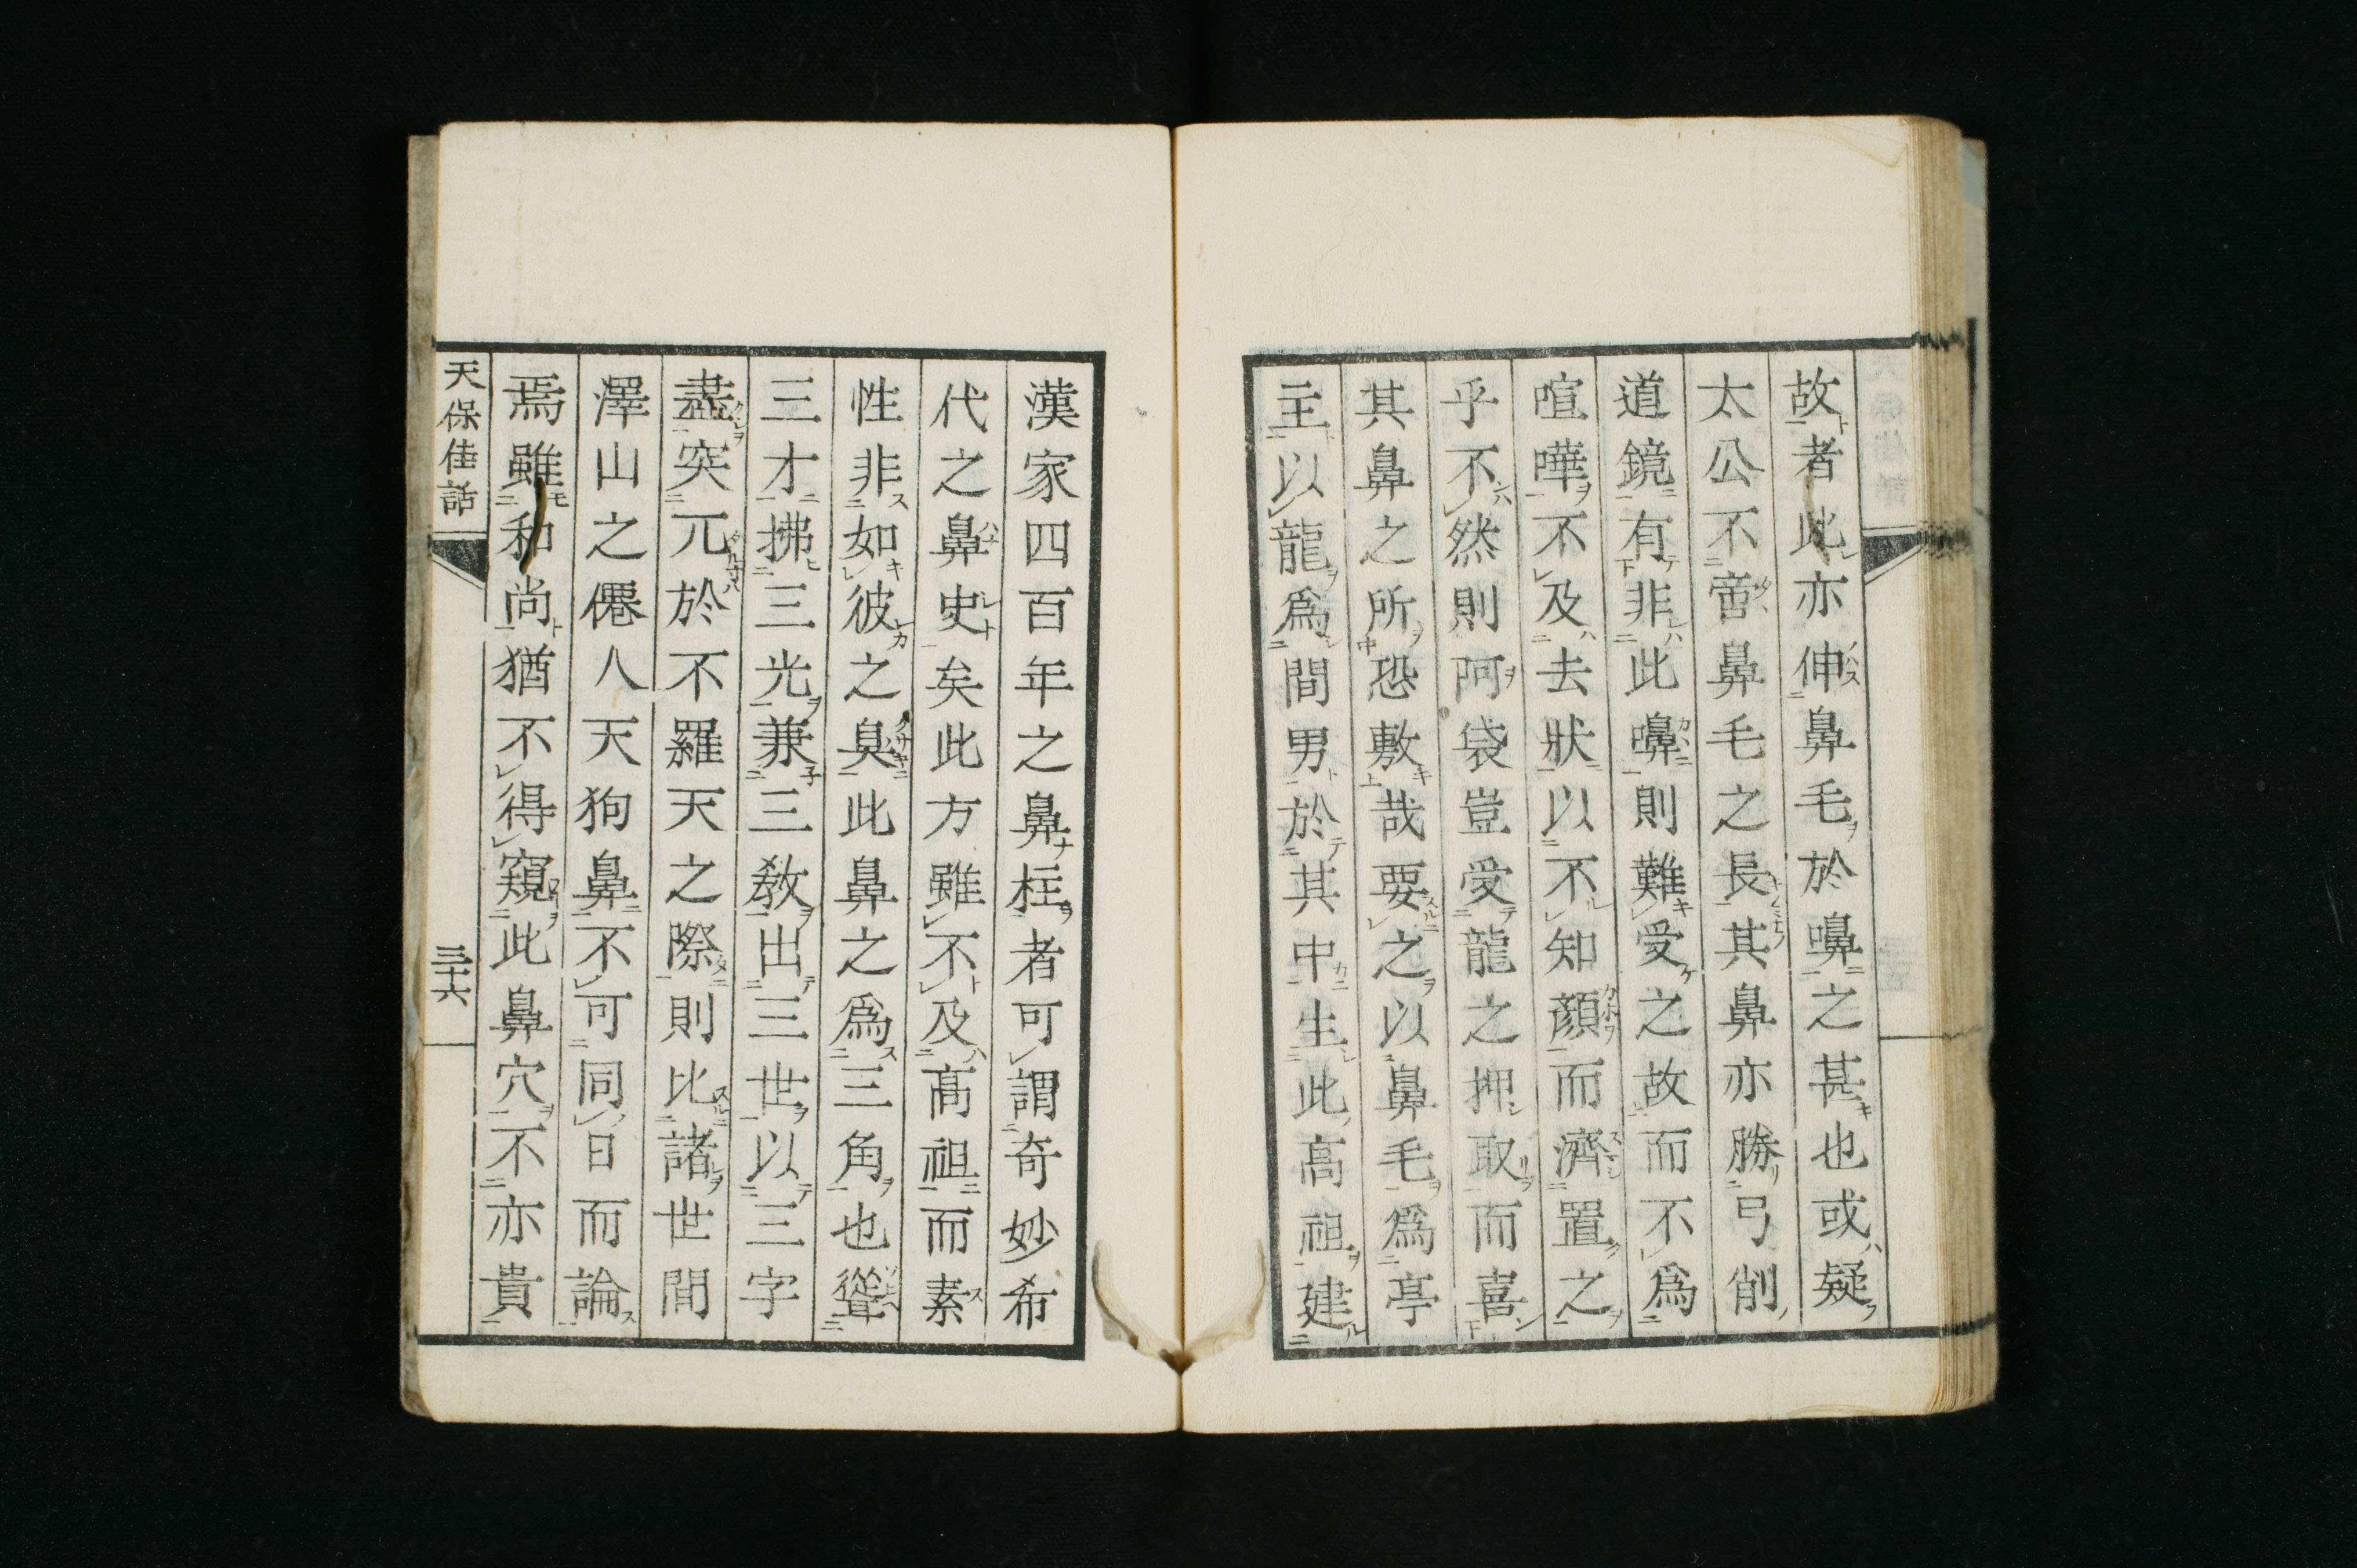 故者此亦伸鼻毛於嚊之甚也或疑
太公不啻鼻毛之長其鼻亦勝弓削
道鏡有非此嚊則難受之故而不爲
喧嘩不及去狀以不知顏而濟置之
乎不然則阿袋豈愛龍之押取而喜
其鼻之所恐敷哉要之以鼻毛爲亭
主以龍爲間男於其中生此髙祖建
漢家四百年之鼻柱者可謂奇妙希
代之鼻史矣此方雖不及髙祖而素
性非如彼之臭此鼻之爲三角也聳
三才拂三光兼三教出三世以三字
盡突兀於不羅天之際則比諸世間
澤山之僊人天狗鼻不可同日而論
焉雖和尚猶不得窺此鼻穴不亦貴
天保佳話
三十六